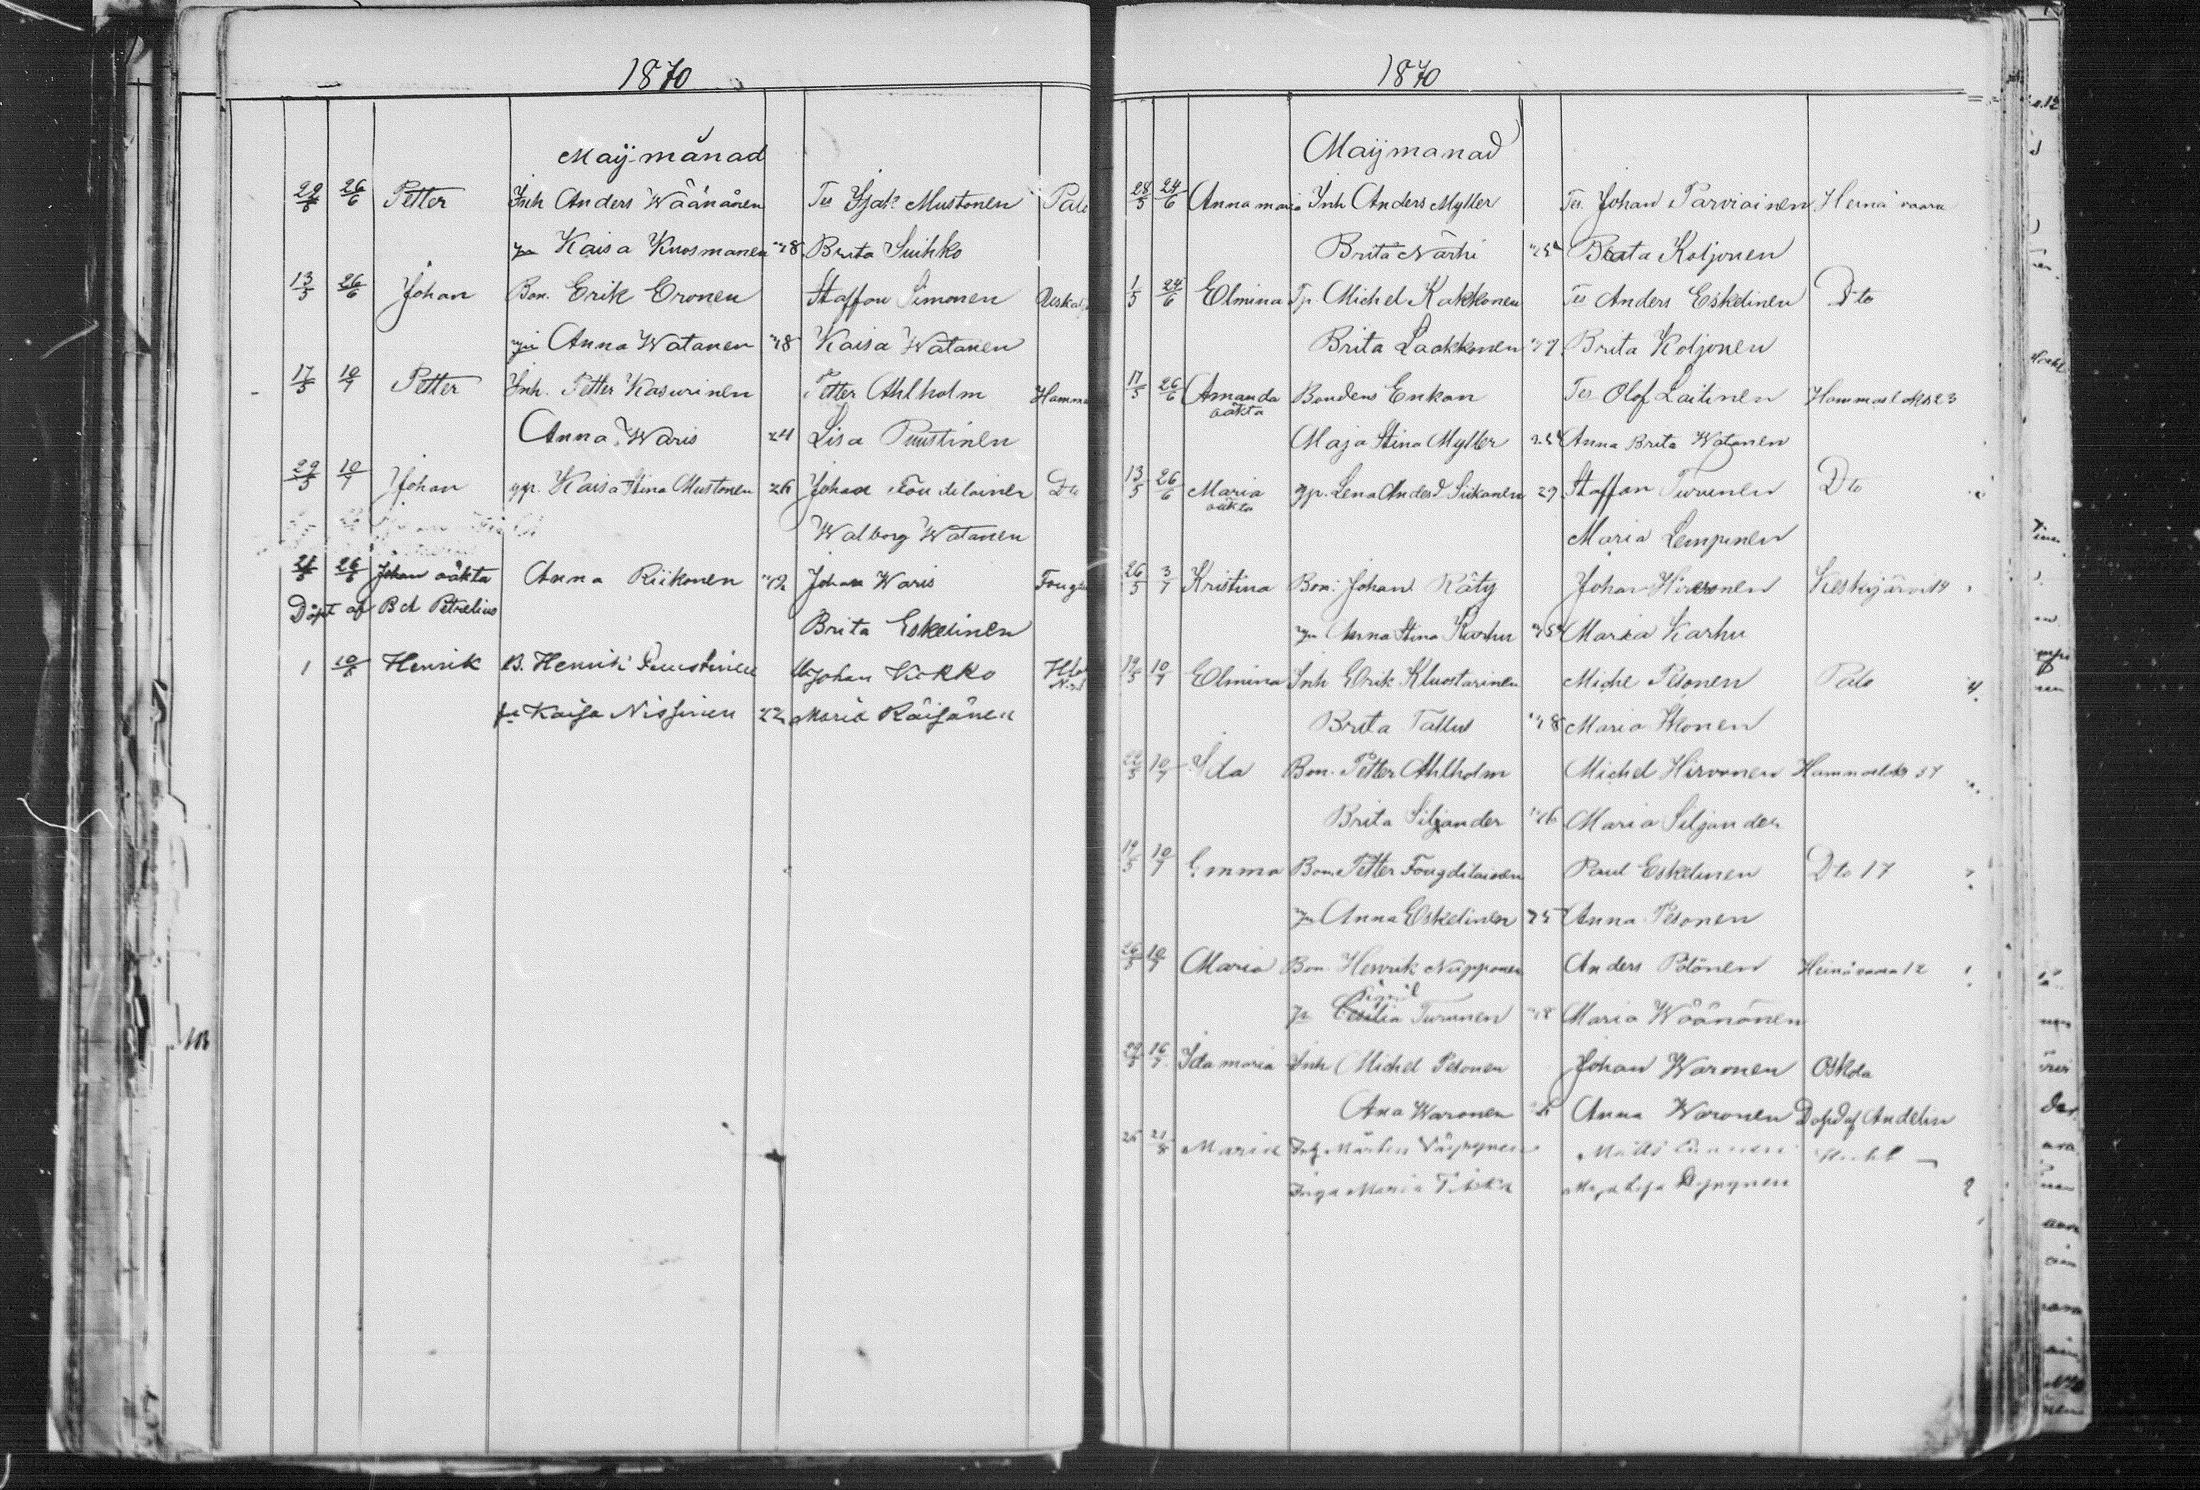 1870
Maij månad
29/5 26/6 Petter Inh Anders Wäänänen Tes Isak Mustonen Palo
Kaisa Kuosmanen 48 Brita Suihko
13/5 26/6 Johan Bon. Erik Eronen Staffan Simonen
Anna Watanen 48 Kaisa Watanen
17/5 10/7 Petter Inh. Petter Kasurinen Petter Ahlholm Hamma
Anna Waris 24 Lisa Puustinen
29/5 10/7 Johan gp. Kaisa Stina Mustonen 26 Johan Dto
Walborg Watanen
26/6 Johan oäkta Anna Riikonen 42 Johan Waris
Döpt af Bd Petrelius
Brita Eskelinen
1 Henrik B. Henrik Puustinen Johan Kokko
Kaisa Nissinen 22 Maria Räisänen
1870
Maij manad
28/5 24/6 Anna maria Inh Anders Myller Tes. Johan Parviainen Heinävaara
Brita Närhi Brita Koljonen
1/5 24/6 Elmina Tp. Michel Kakkonen Tes Anders Eskelinen Dto
Brita Laakkonen Brita Koljonen
17/5 26/6 Amanda Bondens Enkan Tes. Olof Laitinen Hammaslaks 23
oäkta
Maja Stina Myller Anna Brita Watanen
13/5 26/6 Maria gp. Lena Andersd. Siikanen 29 Staffan Turunen Dto
oäkta
Maria Lempinen
26/5 3/7 Kristina Bon: Johan Räty Johan Hirvonen Keskijärvi 14
Anna Stina Karhu Maria Karhu
19/5 10/7 Elmina Inh Erik Kluostarinen Michel Pesonen Palo
Brita Tallus 48 Maria Ikonen
22/5 10/7 Ida Bon. Petter Ahlholm Michel Hirvonen Hammaslks 37
Brita Siljander 46 Maria Siljander
19/5 10/7 Emma Bon. Petter Fougdilainen Paul Eskelinen Dto 17
Anna Eskelinen 25 Anna Pesonen
26/5 10/7 Maria Bon. Henrik Nupponen Anders Pölönen Heinävaara 12
Turunen 48 Maria Wäänänen
29/5 16/7 Ida maria Inh Michel Pesonen Johan Waronen Oskola
Ana Waronen Anna Waronen Döpt af Andelin
26 21/8 Maria Märten
Inga Maria